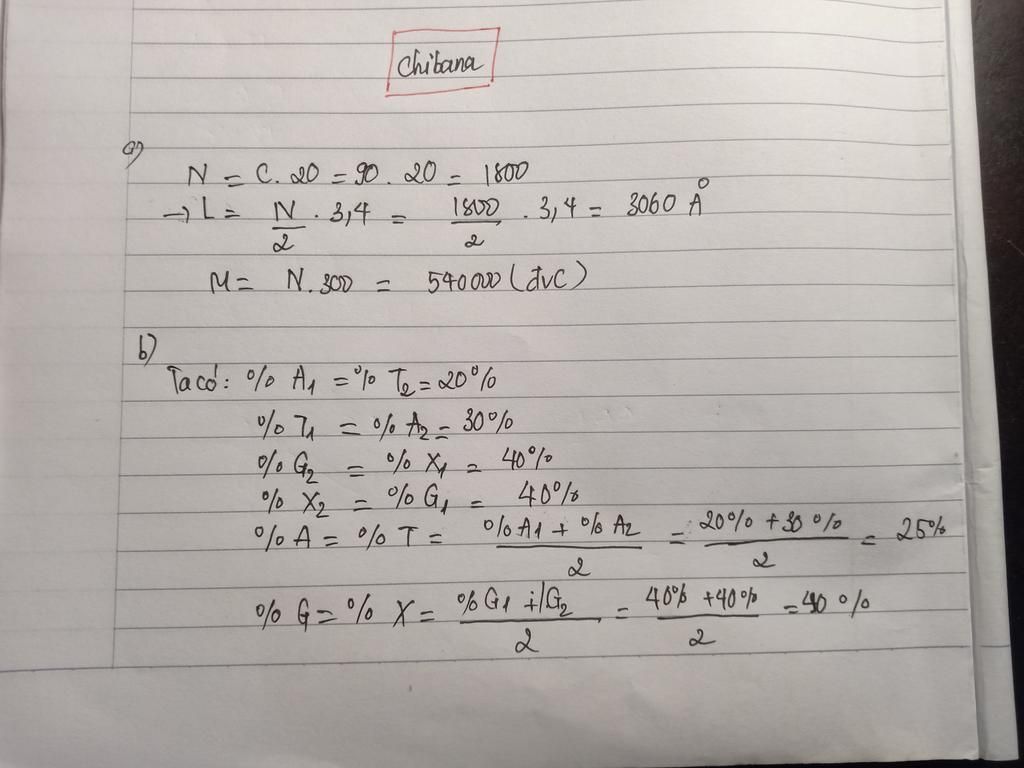 Chibana
a)
N = C. 20 = 90 . 20 = 1800
→ L = N/2 . 3,4 = 1800/2 . 3,4 = 3060 Å
M = N. 300 = 540000 (đvC)
b)
Ta có: % A₁ = % T₂ = 20%
% T₁ = % A₂ = 30%
% G₂ = % X₁ = 40%
% X₂ = % G₁ = 40%
% A = % T = (% A₁ + % A₂)/2 = (20% + 30%)/2 = 25%
% G = % X = (% G₁ + % G₂)/2 = (40% + 40%)/2 = 40%